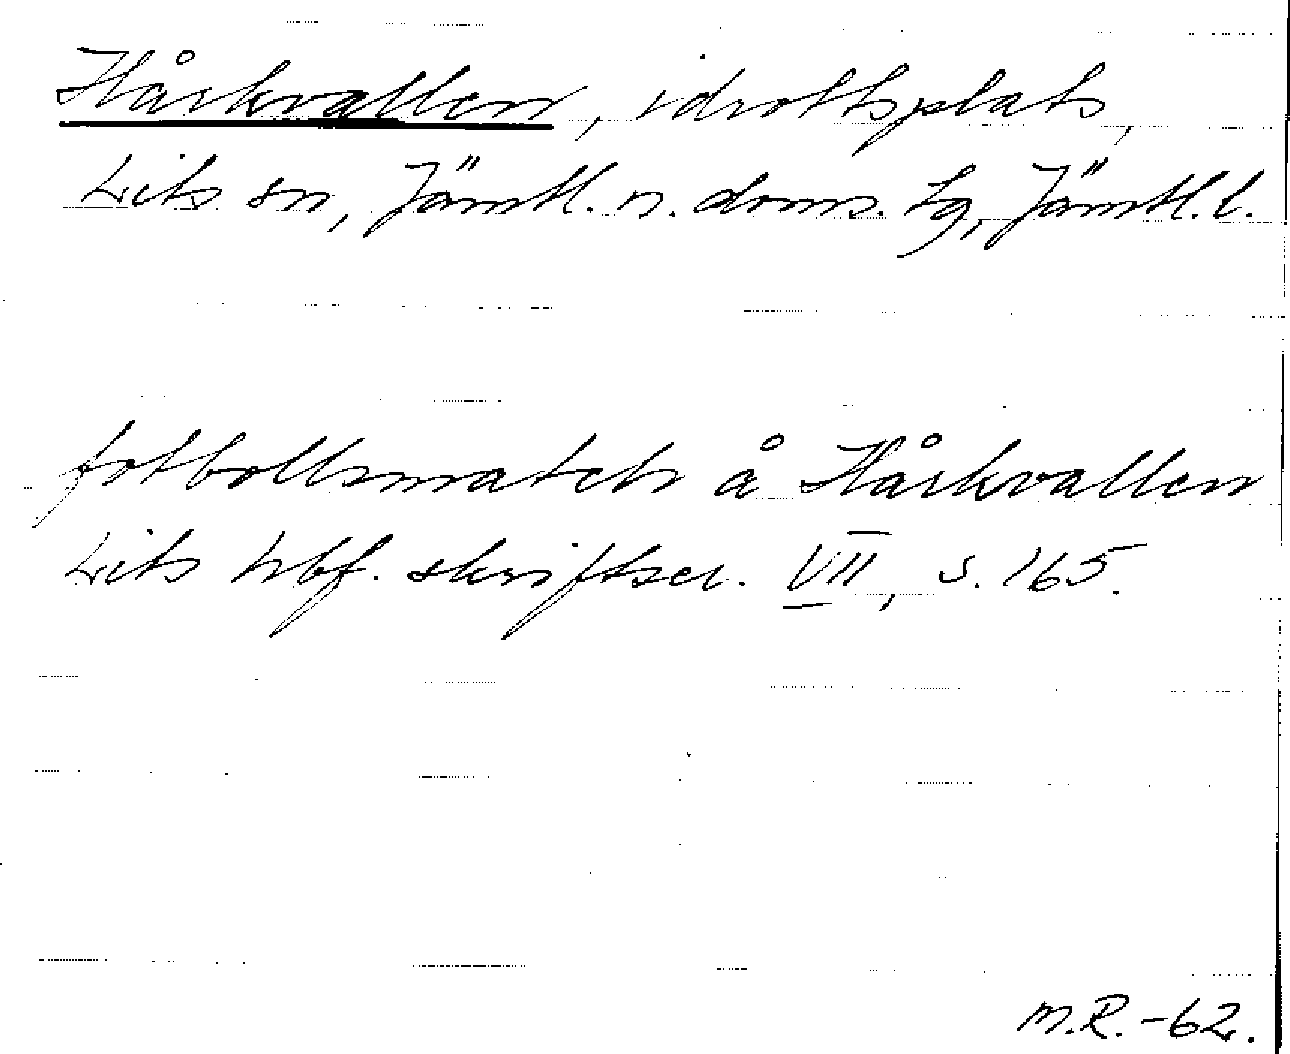 Hårkvallen, idrottsplats,
Lits sn, Jämtl. n. doms. tg, Jämtl. l.
fotbollsmatch å Hårkvallen
Lits hbf. skriftser. VII, s. 165.
M.R. -62.